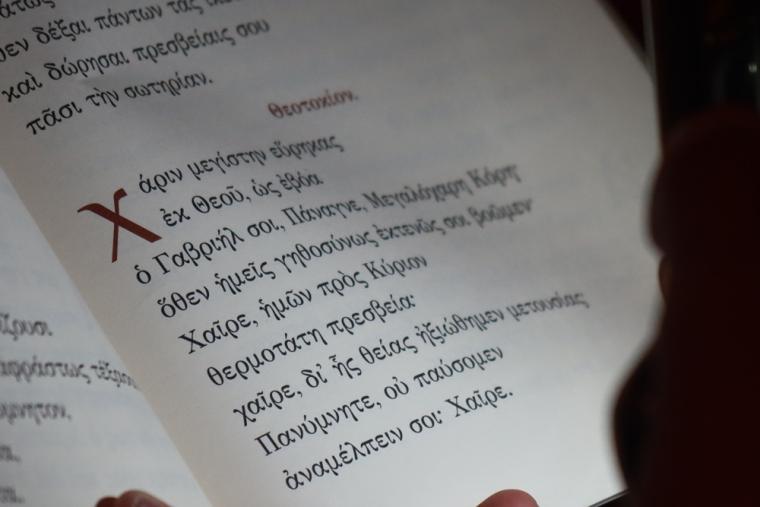 θεν δέξαι πάντων τὰς
καὶ δώρησαι πρεσβείαις σου
πᾶσι τὴν σωτηρίαν.
Θεοτοκίον.
Χάριν μεγίστην εὕρηκας
ἐκ Θεοῦ, ὡς ἐβόα
ὁ Γαβριήλ σοι, Πάναγνε, Μεγαλόχαρη Κόρη·
ὅθεν ἡμεῖς γηθοσύνως ἐκτενῶς σοι βοῶμεν
Χαῖρε, ἡμῶν πρὸς Κύριον
θερμοτάτη πρεσβεία·
χαῖρε, δι' ἧς θείας ἠξιώθημεν μετουσίας
Πανύμνητε, οὐ παύσομεν
ἀναμέλπειν σοι· Χαῖρε.